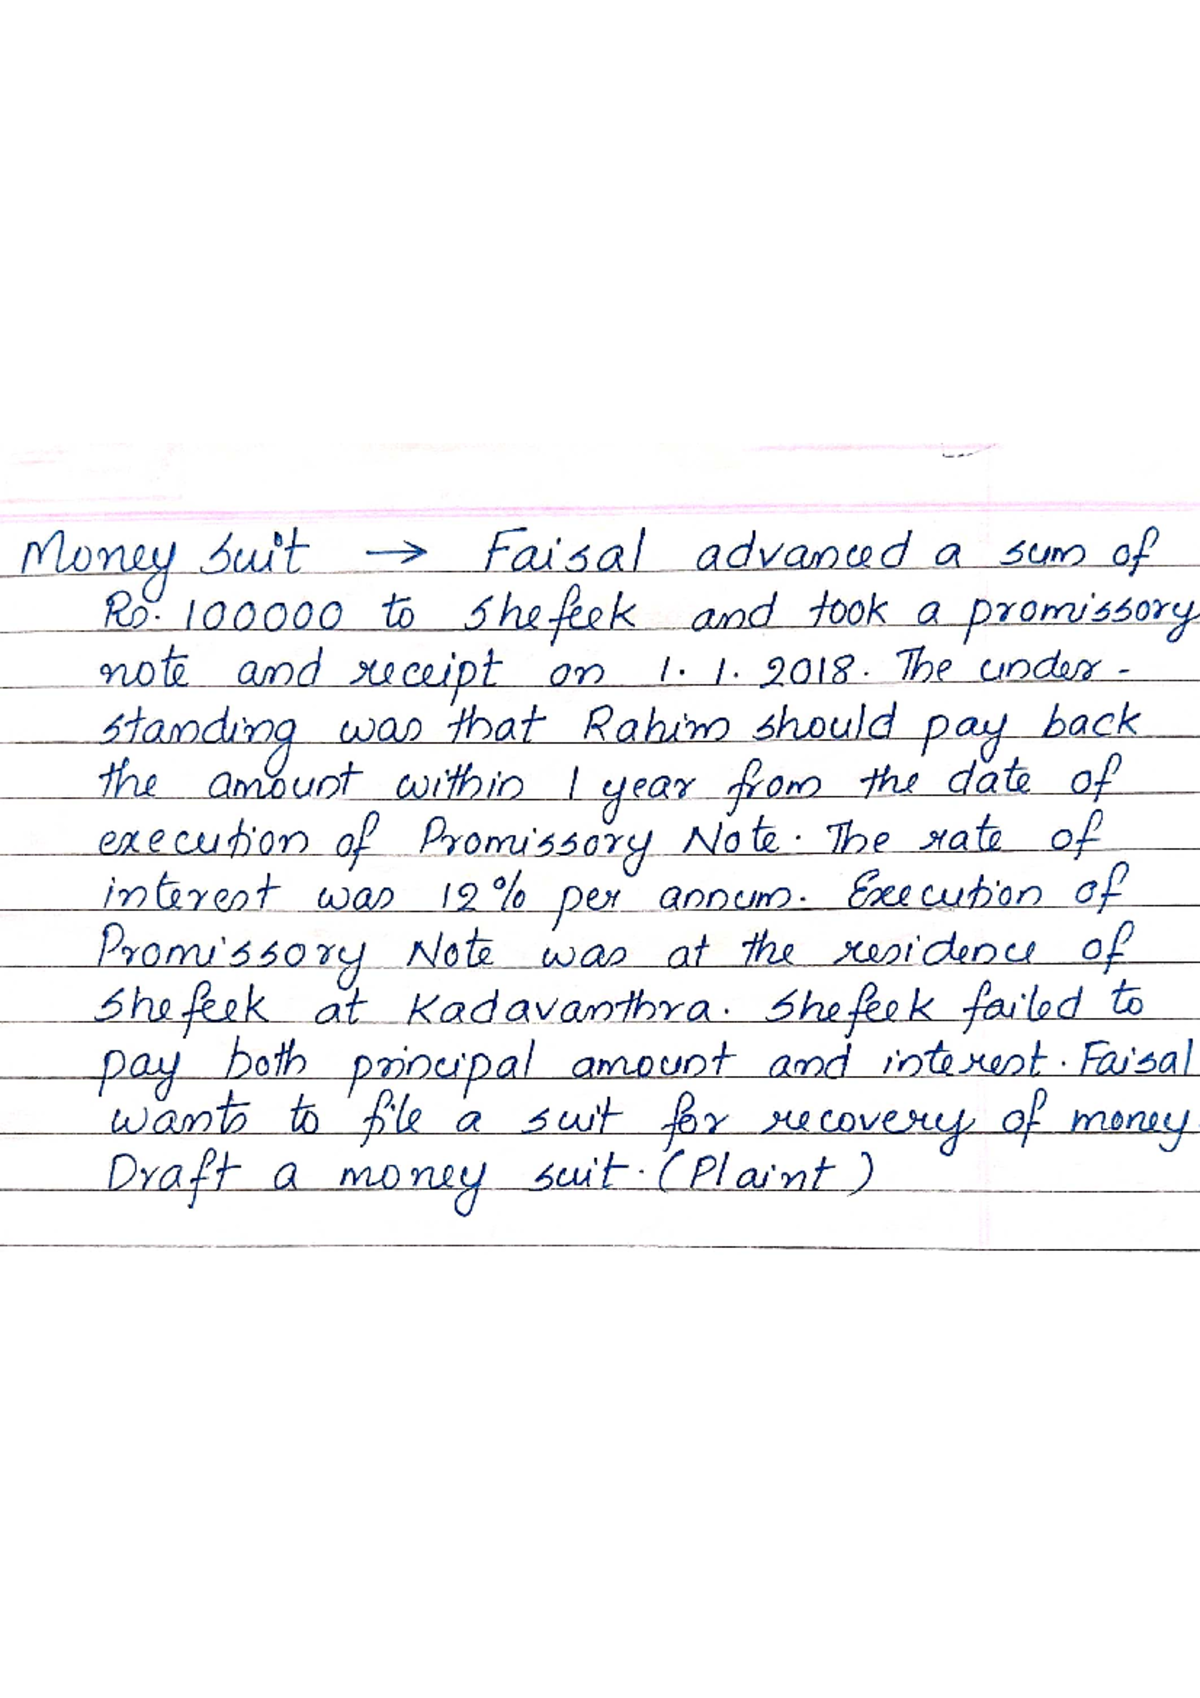 Money Suit → Faisal advanced a sum of
Rs. 100000 to Shefeek and took a promissory
note and receipt on 1. 1. 2018. The under-
standing was that Rahim should pay back
the amount within 1 year from the date of
execution of Promissory Note. The rate of
interest was 12% per annum. Execution of
Promissory Note was at the residence of
Shefeek at Kadavanthra. Shefeek failed to
pay both principal amount and interest. Faisal
wants to file a suit for recovery of money.
Draft a money suit. (Plaint)